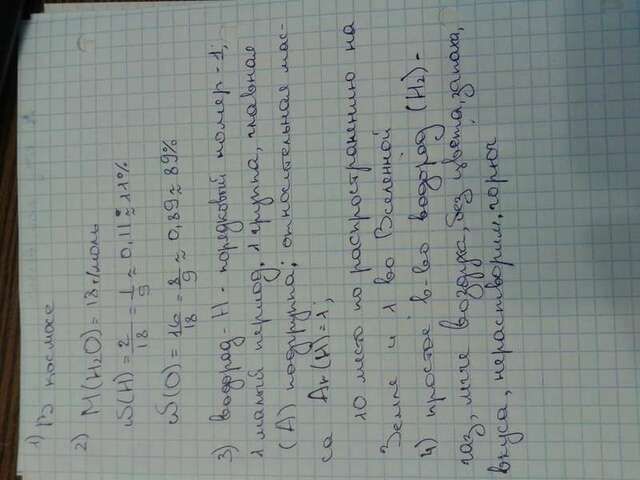 1) В космосе
2) M(H₂O) = 18 г/моль
ω(H) = 2/18 = 1/9 ≈ 0,11 ≈ 11%
ω(O) = 16/18 = 8/9 ≈ 0,89 ≈ 89%
3) водород - H - порядковый номер - 1;
1 малый период, 1 группа, главная
(А) подгруппа; относительная мас-
са Ar(H) = 1;
10 место по распространению на
Земле и 1 во Вселенной
4) простое в-во водород (H₂) -
газ, легче воздуха, без цвета, запаха,
вкуса, нерастворим, горюч